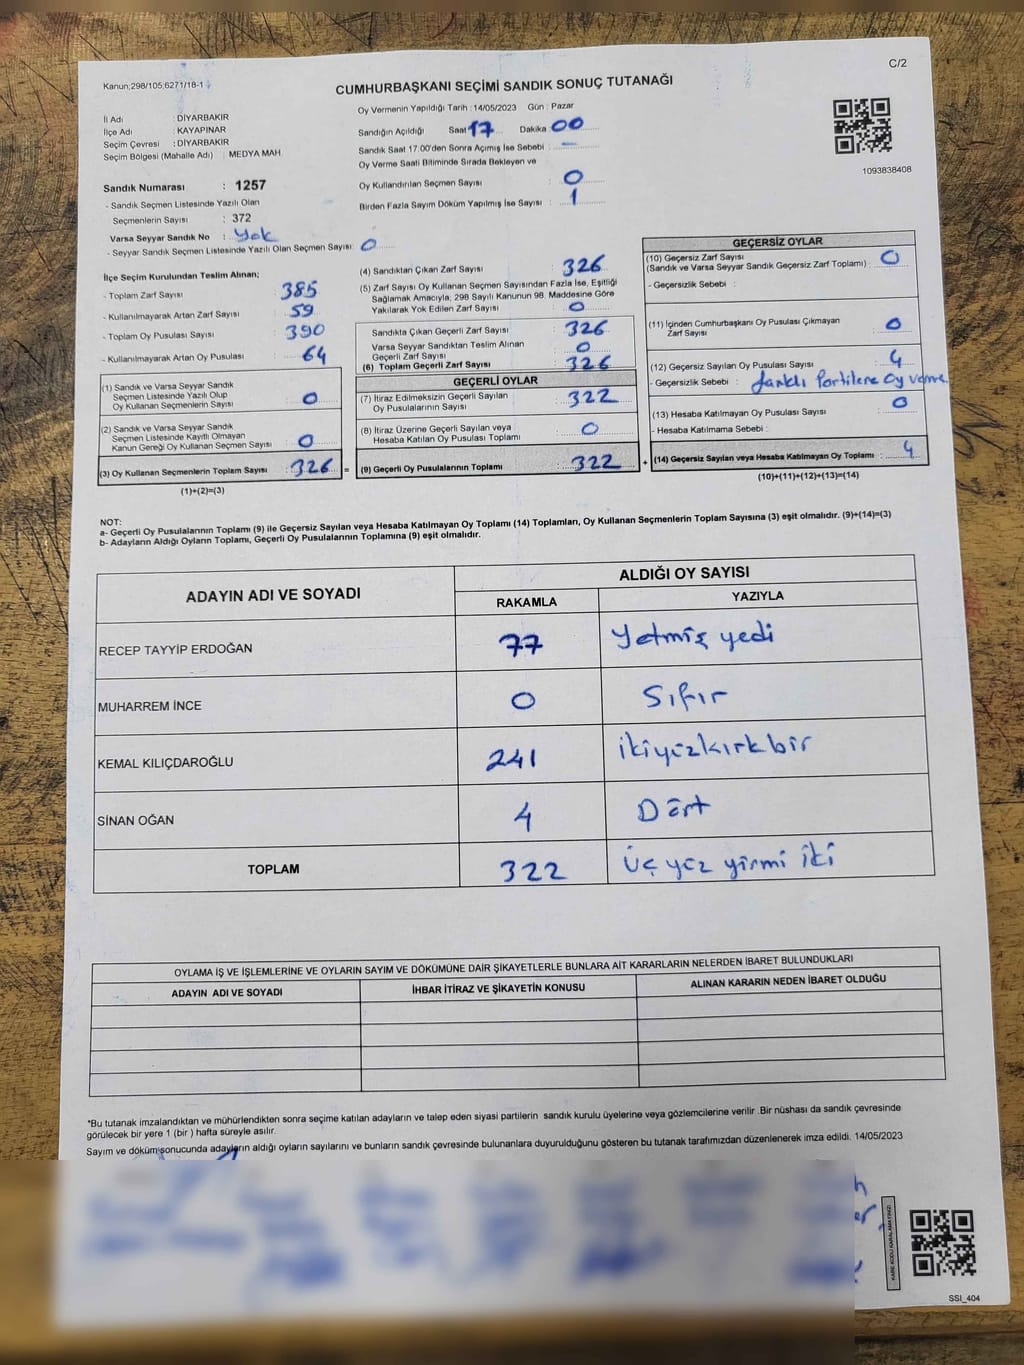 C/2
Kanun;298/105;6271/18-1
CUMHURBAŞKANI SEÇİMİ SANDIK SONUÇ TUTANAĞI
İl Adı : DİYARBAKIR
İlçe Adı : KAYAPINAR
Seçim Çevresi : DİYARBAKIR
Seçim Bölgesi (Mahalle Adı) : MEDYA MAH
Sandık Numarası : 1257
- Sandık Seçmen Listesinde Yazılı Olan
Seçmenlerin Sayısı : 372
Varsa Seyyar Sandık No : Yok
- Seyyar Sandık Seçmen Listesinde Yazılı Olan Seçmen Sayısı: 0
Oy Vermenin Yapıldığı Tarih : 14/05/2023 Gün : Pazar
Sandığın Açıldığı Saat 17 Dakika 00
Sandık Saat 17:00'den Sonra Açımış İse Sebebi : -
Oy Verme Saati Bitiminde Sırada Bekleyen ve
Oy Kullandırılan Seçmen Sayısı : 0
Birden Fazla Sayım Döküm Yapılmış İse Sayısı : 1
1093838408
İlçe Seçim Kurulundan Teslim Alınan;
- Toplam Zarf Sayısı : 385
- Kullanılmayarak Artan Zarf Sayısı : 59
- Toplam Oy Pusulası Sayısı : 390
- Kullanılmayarak Artan Oy Pusulası : 64
(1) Sandık ve Varsa Seyyar Sandık
Seçmen Listesinde Yazılı Olup
Oy Kullanan Seçmenlerin Sayısı : 0
(2) Sandık ve Varsa Seyyar Sandık
Seçmen Listesinde Kayıtlı Olmayan
Kanun Gereği Oy Kullanan Seçmen Sayısı : 0
(3) Oy Kullanan Seçmenlerin Toplam Sayısı : 326 =
(1)+(2)=(3)
(4) Sandıktan Çıkan Zarf Sayısı : 326
(5) Zarf Sayısı Oy Kullanan Seçmen Sayısından Fazla İse, Eşitliği
Sağlamak Amacıyla, 298 Sayılı Kanunun 98. Maddesine Göre
Yakılarak Yok Edilen Zarf Sayısı : 0
Sandıkta Çıkan Geçerli Zarf Sayısı : 326
Varsa Seyyar Sandıktan Teslim Alınan
Geçerli Zarf Sayısı : 0
(6) Toplam Geçerli Zarf Sayısı : 326
GEÇERLİ OYLAR
(7) İtiraz Edilmeksizin Geçerli Sayılan
Oy Pusulalarının Sayısı : 322
(8) İtiraz Üzerine Geçerli Sayılan veya
Hesaba Katılan Oy Pusulası Toplamı : 0
(9) Geçerli Oy Pusulalarının Toplamı : 322 +
GEÇERSİZ OYLAR
(10) Geçersiz Zarf Sayısı
(Sandık ve Varsa Seyyar Sandık Geçersiz Zarf Toplamı) : 0
- Geçersizlik Sebebi :
(11) İçinden Cumhurbaşkanı Oy Pusulası Çıkmayan
Zarf Sayısı : 0
(12) Geçersiz Sayılan Oy Pusulası Sayısı : 4
- Geçersizlik Sebebi : farklı Partilere oy verme
(13) Hesaba Katılmayan Oy Pusulası Sayısı : 0
- Hesaba Katılmama Sebebi :
(14) Geçersiz Sayılan veya Hesaba Katılmayan Oy Toplamı : 4
(10)+(11)+(12)+(13)=(14)
NOT:
a- Geçerli Oy Pusulalarının Toplamı (9) ile Geçersiz Sayılan veya Hesaba Katılmayan Oy Toplamı (14) Toplamları, Oy Kullanan Seçmenlerin Toplam Sayısına (3) eşit olmalıdır. (9)+(14)=(3)
b- Adayların Aldığı Oyların Toplamı, Geçerli Oy Pusulalarının Toplamına (9) eşit olmalıdır.
ADAYIN ADI VE SOYADI ALDIĞI OY SAYISI
RAKAMLA YAZIYLA
RECEP TAYYİP ERDOĞAN 77 Yetmiş yedi
MUHARREM İNCE 0 Sıfır
KEMAL KILIÇDAROĞLU 241 ikiyüzkırkbir
SİNAN OĞAN 4 Dört
TOPLAM 322 Üç yüz yirmi iki
OYLAMA İŞ VE İŞLEMLERİNE VE OYLARIN SAYIM VE DÖKÜMÜNE DAİR ŞİKAYETLERLE BUNLARA AİT KARARLARIN NELERDEN İBARET BULUNDUKLARI
ADAYIN ADI VE SOYADI İHBAR İTİRAZ VE ŞİKAYETİN KONUSU ALINAN KARARIN NEDEN İBARET OLDUĞU
*Bu tutanak imzalandıktan ve mühürlendikten sonra seçime katılan adayların ve talep eden siyasi partilerin sandık kurulu üyelerine veya gözlemcilerine verilir .Bir nüshası da sandık çevresinde
görülecek bir yere 1 (bir ) hafta süreyle asılır.
Sayım ve döküm sonucunda adayların aldığı oyların sayılarını ve bunların sandık çevresinde bulunanlara duyurulduğunu gösteren bu tutanak tarafımızdan düzenlenerek imza edildi. 14/05/2023
KARE KODU KARALAMAYINIZ!
SSI_404